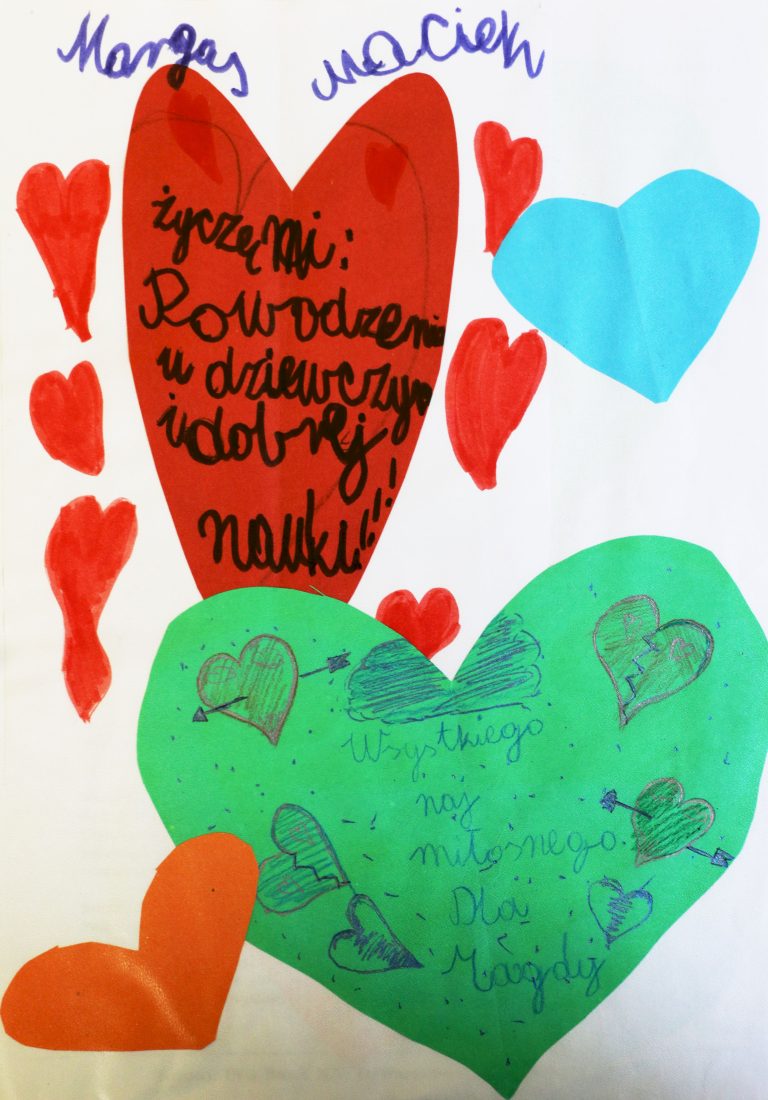 Margas maciek
życzę mi:
Powodzenia
u dziewczyn
i dobrej
nauki!!!!
Wszystkiego
naj
miłosnego
Dla
Magdy